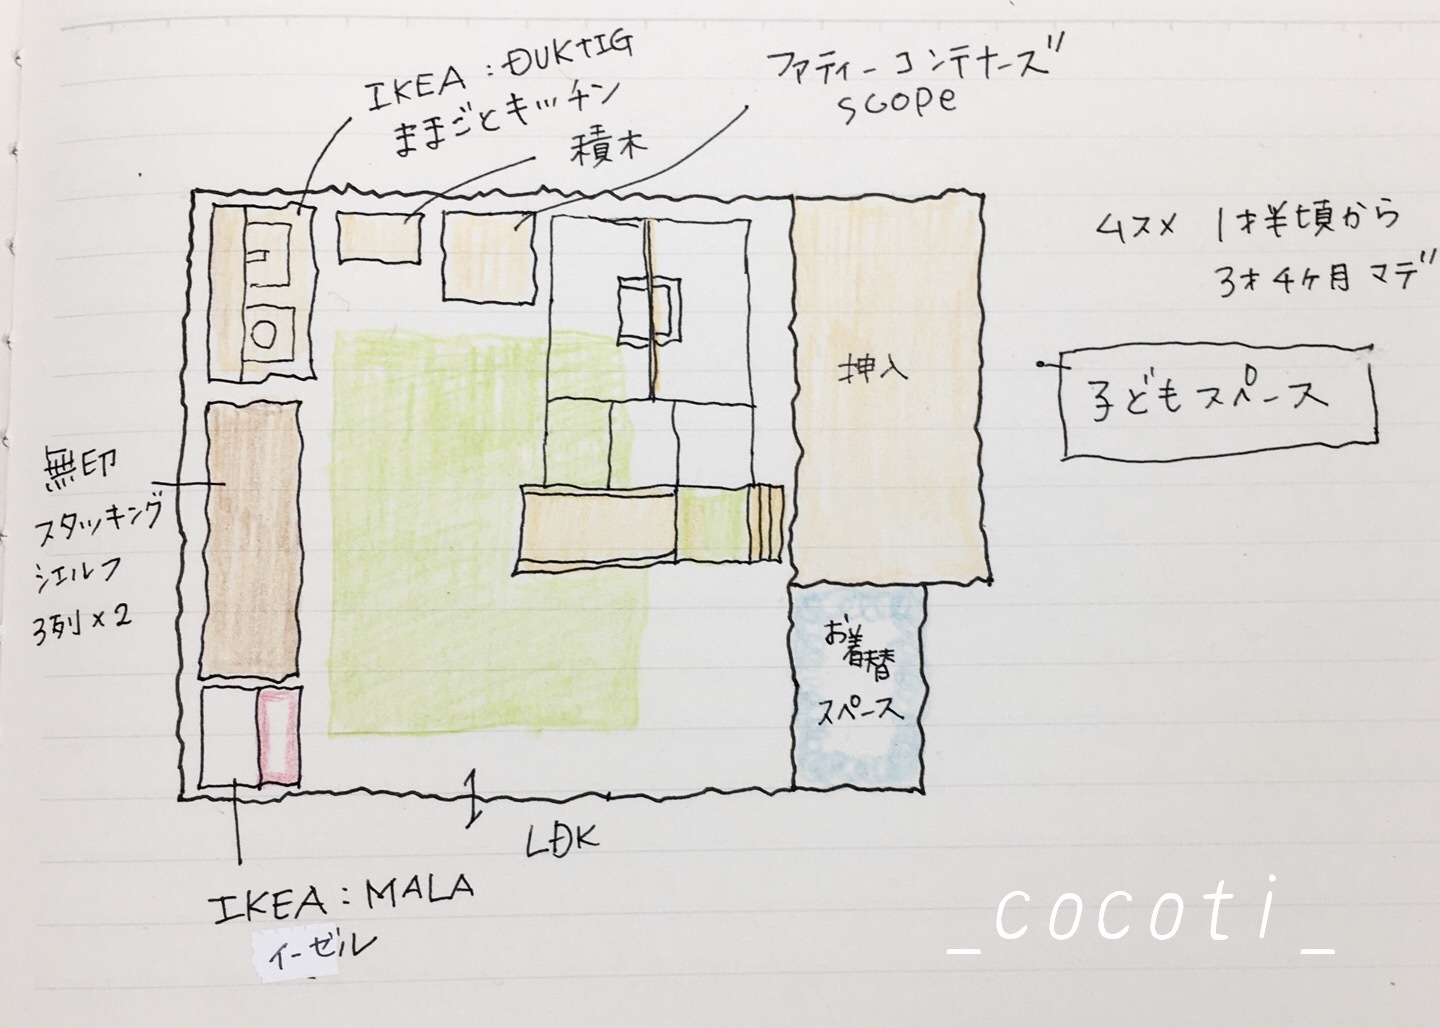 IKEA：DUKTIG
ままごとキッチン
積木
ファティーコンテナーズ
scope
ムスメ 1才半頃から
3才4ヶ月マデ
子どもスペース
押入
無印
スタッキング
シェルフ
3列×2
お着替
スペース
LDK
IKEA：MALA
イーゼル
_cocoti_